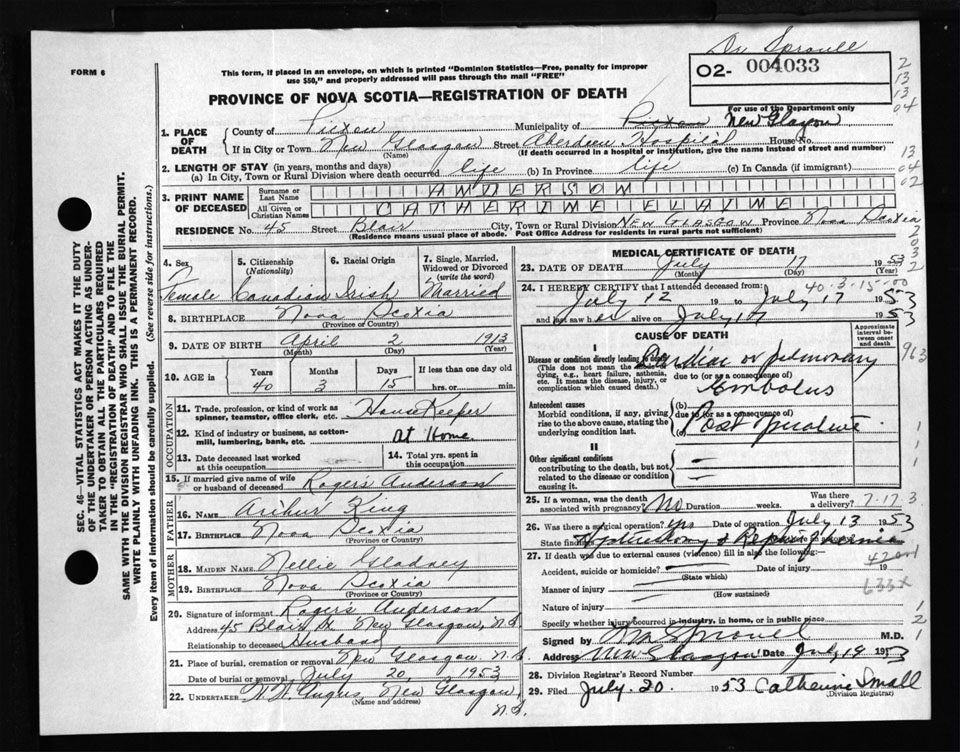 Dr Sproull
FORM 6
This form, if placed in an envelope, on which is printed "Dominion Statistics—Free, penalty for improper
use $50," and properly addressed will pass through the mail "FREE"
02- 004033
PROVINCE OF NOVA SCOTIA—REGISTRATION OF DEATH
For use of the Department only
1. PLACE OF DEATH
County of Pictou Municipality of Pictou New Glasgow
If in City or Town New Glasgow Street Aberdeen Hospital House No.
(Name) (If death occurred in a hospital or institution, give the name instead of street and number)
2. LENGTH OF STAY (in years, months and days)
(a) In City, Town or Rural Division where death occurred life (b) In Province life (c) In Canada (if immigrant)
3. PRINT NAME OF DECEASED
Surname or Last Name ANDERSON
All Given or Christian Names CATHERINE ELAINE
RESIDENCE No. 45 Street Blair City, Town or Rural Division NEW GLASGOW Province Nova Scotia
(Residence means usual place of abode. Post Office Address for residents in rural parts not sufficient)
SEC. 46—VITAL STATISTICS ACT MAKES IT THE DUTY
OF THE UNDERTAKER OR PERSON ACTING AS UNDER-
TAKER TO OBTAIN ALL THE PARTICULARS REQUIRED
IN THE "REGISTRATION OF DEATH" AND TO FILE THE
SAME WITH THE DIVISION REGISTRAR WHO SHALL ISSUE THE BURIAL PERMIT.
WRITE PLAINLY WITH UNFADING INK. THIS IS A PERMANENT RECORD.
Every item of information should be carefully supplied. (See reverse side for instructions.)
4. Sex Female
5. Citizenship (Nationality) Canadian
6. Racial Origin Irish
7. Single, Married, Widowed or Divorced (write the word) Married
8. BIRTHPLACE Nova Scotia
(Province or Country)
9. DATE OF BIRTH April 2 1913
(Month) (Day) (Year)
10. AGE in Years Months Days If less than one day old
40 3 15 hrs. or min.
OCCUPATION
11. Trade, profession, or kind of work as
spinner, teamster, office clerk, etc. HouseKeeper
12. Kind of industry or business, as cotton-
mill, lumbering, bank, etc. At Home
13. Date deceased last worked
at this occupation
14. Total yrs. spent in
this occupation
15. If married give name of wife
or husband of deceased Rogers Anderson
FATHER
16. NAME Arthur King
17. BIRTHPLACE Nova Scotia
(Province or Country)
MOTHER
18. MAIDEN NAME Nellie Gladney
19. BIRTHPLACE Nova Scotia
(Province or Country)
20. Signature of informant Rogers Anderson
Address 45 Blair St. New Glasgow, N.S.
Relationship to deceased Husband
21. Place of burial, cremation or removal New Glasgow N.S.
Date of burial or removal July 20, 1953
22. UNDERTAKER Angus, New Glasgow,
(Name and address) N.S.
MEDICAL CERTIFICATE OF DEATH
23. DATE OF DEATH July 17 1953
(Month) (Day) (Year)
24. I HEREBY CERTIFY that I attended deceased from: 40-3-15-00
July 12 19 to July 17 1953
and last saw her alive on July 17 1953
CAUSE OF DEATH
Approximate interval between onset and death
I
Disease or condition directly leading to death
(This does not mean the mode of
dying, e.g., heart failure, asthenia,
etc. It means the disease, injury, or
complication which caused death.)
Cardiac or pulmonary
due to (or as a consequence of)
Embolus
Antecedent causes
Morbid conditions, if any, giving
rise to the above cause, stating the
underlying condition last.
(b)
due to (or as a consequence of)
(c) Post Operative
II
Other significant conditions
contributing to the death, but not
related to the disease or condition
causing it.
25. If a woman, was the death
associated with pregnancy? No Duration weeks. Was there a delivery?
7-17-3
26. Was there a surgical operation? yes Date of operation July 13 1953
State findings Hysterectomy & Repair of hernia
27. If death was due to external causes (violence) fill in also the following:—
Accident, suicide or homicide? Date of injury 19
(State which)
Manner of injury
(How sustained)
Nature of injury
Specify whether injury occurred in industry, in home, or in public place
Signed by Sproull M.D.
Address New Glasgow Date July 19 1953
28. Division Registrar's Record Number
29. Filed July 20. 1953 Catherine Small
(Division Registrar)